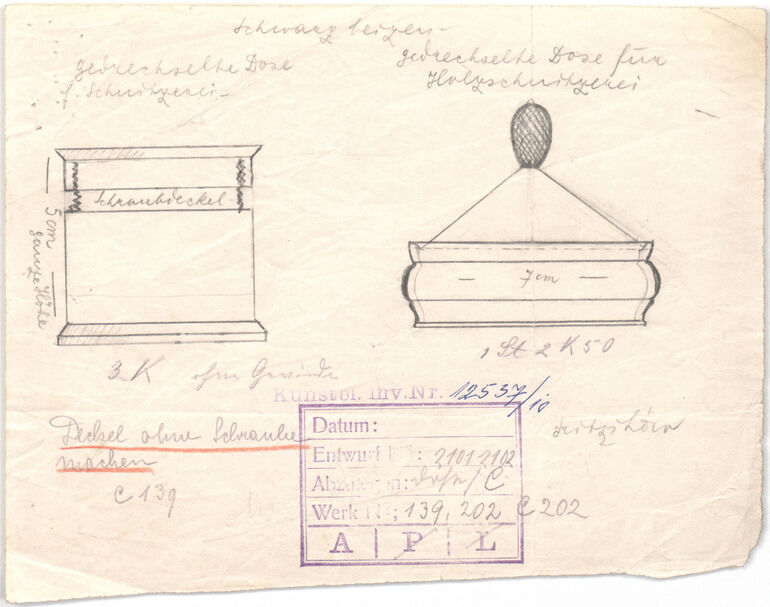 Schwarz beizen
gedrechselte Dose
f. Schnitzerei
gedrechselte Dose für
Holzschnitzerei
Schraubdeckel
5 cm
ganze Höhe
7 cm
3 K ohne Gewinde
1 St 2 K 50
Kunstbl. Inv. Nr. 12537/10
Deckel ohne Schraube
machen
C 139
Datum:
Entwurf Nr: 2101 2102
Abzulegen: Dose / C.
Werk Nr; 139, 202 C 202
A | P | L